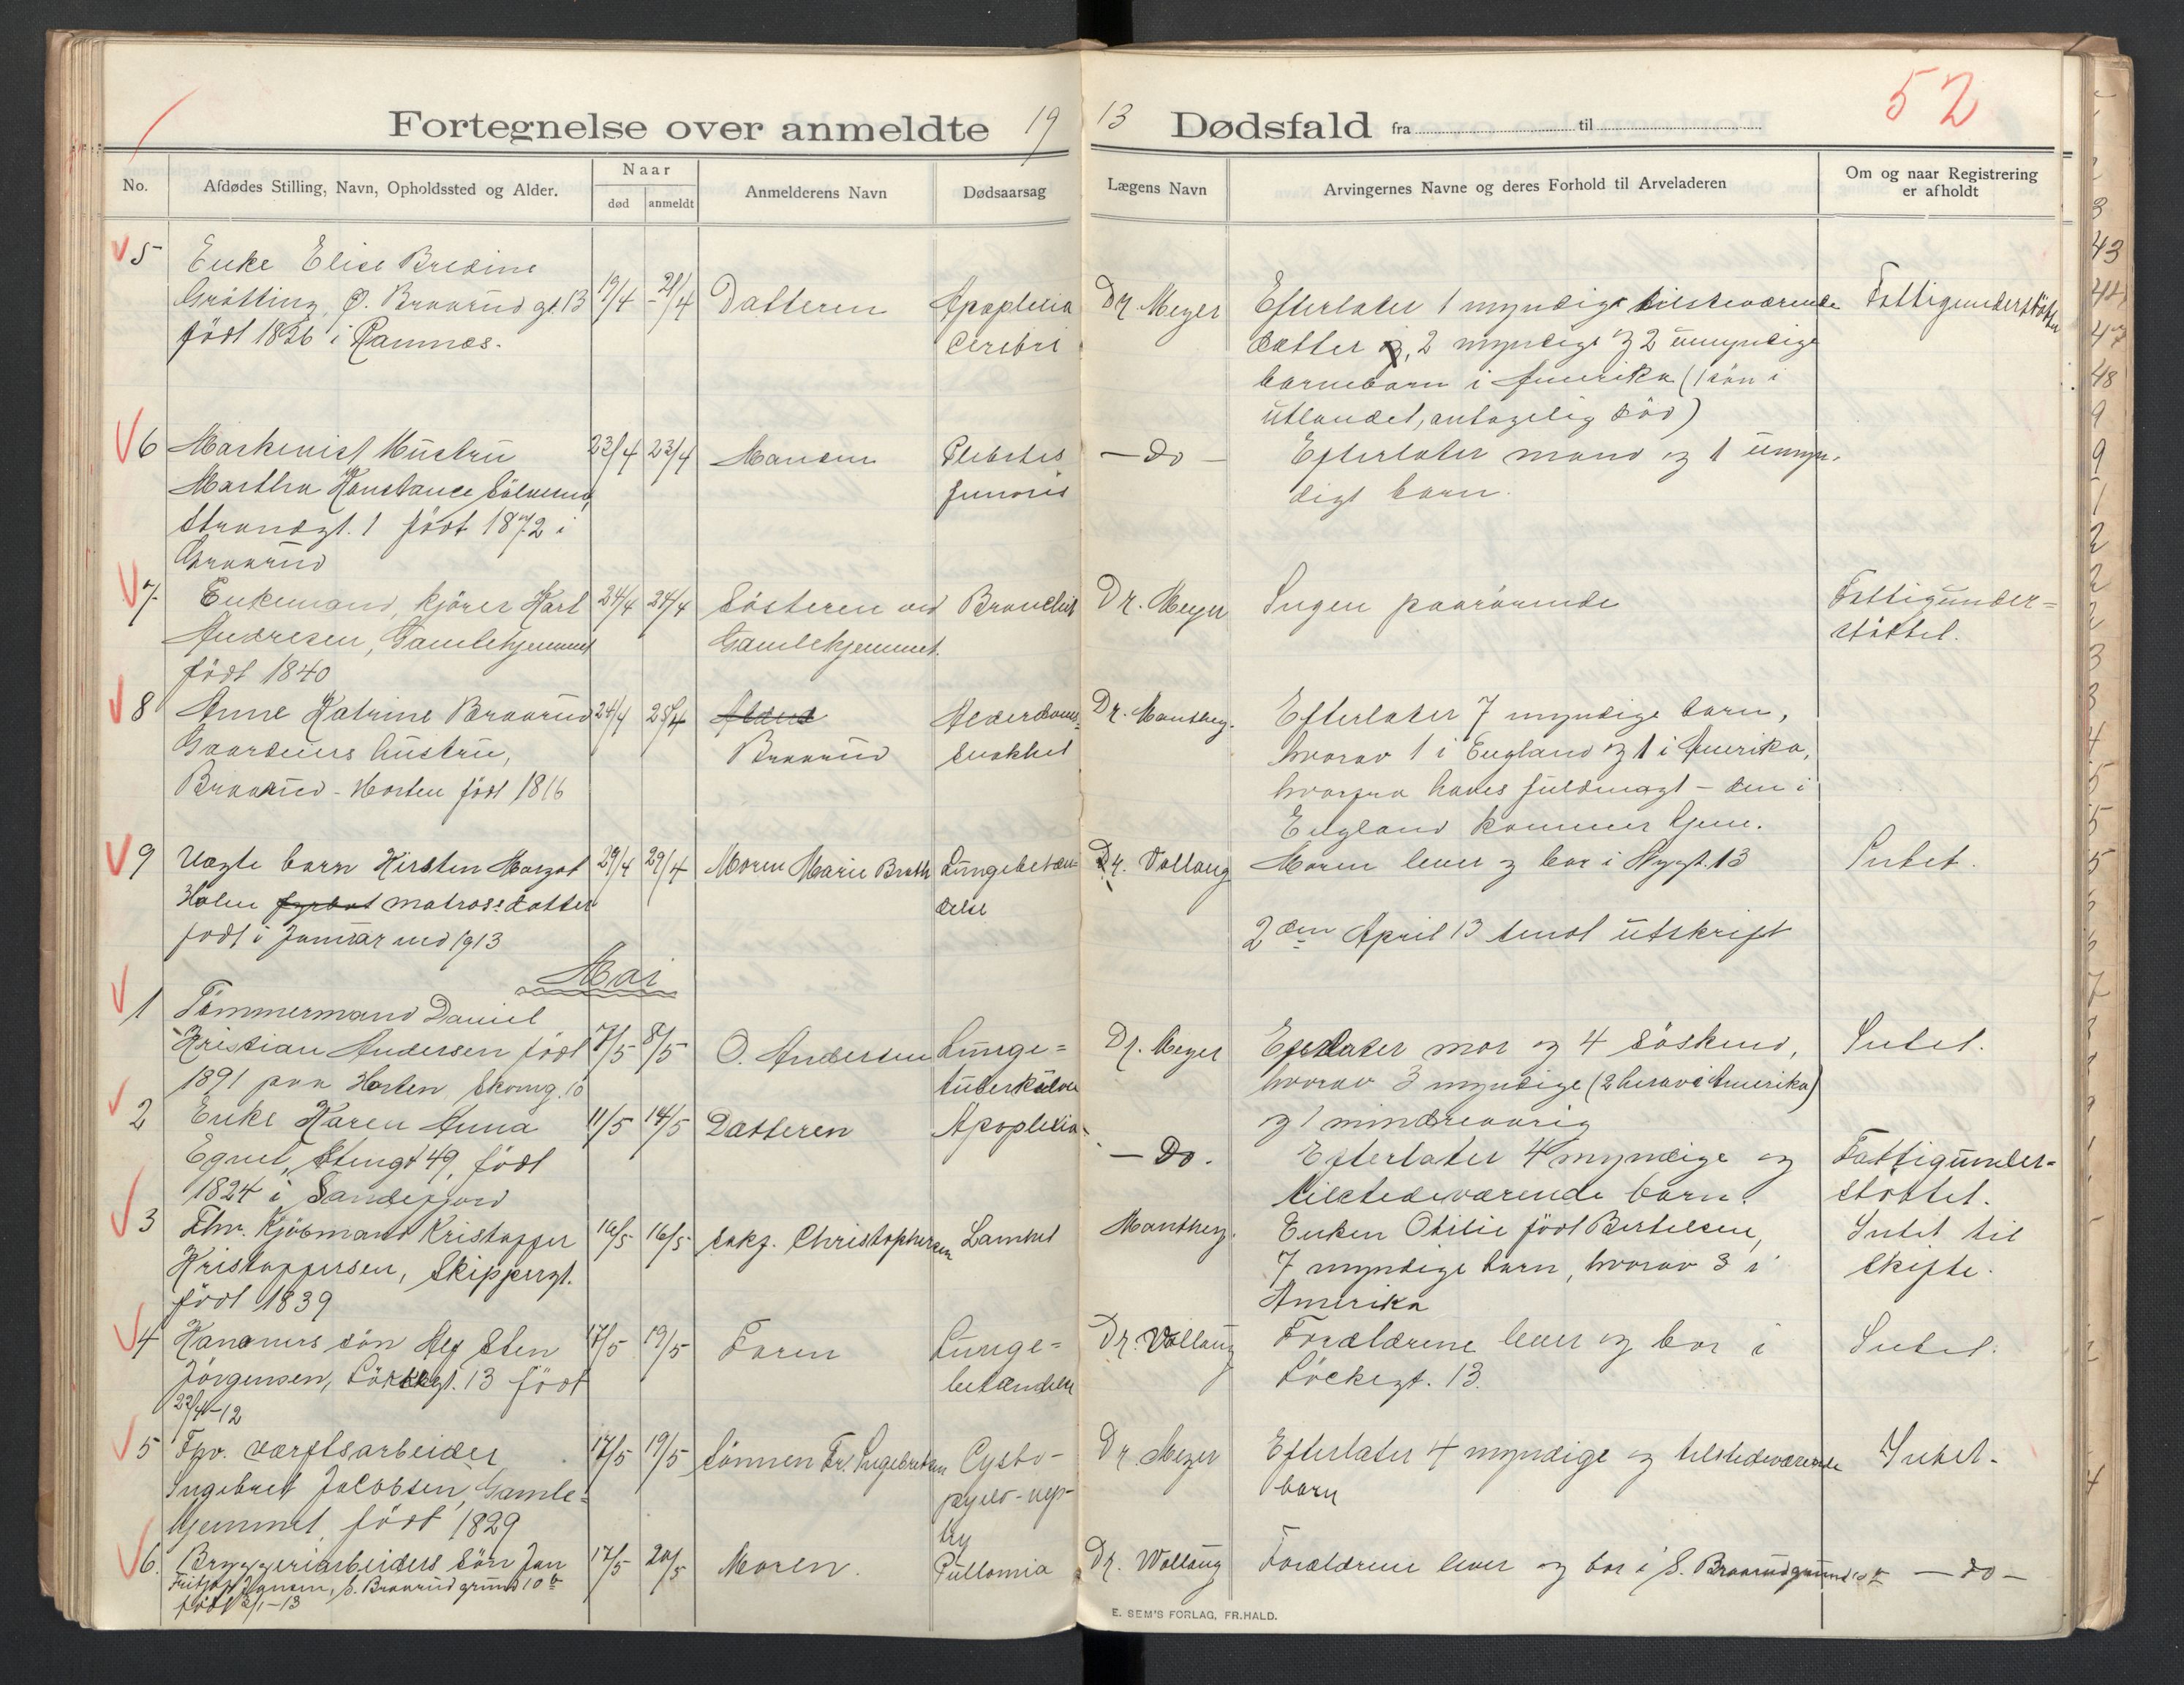 52
Fortegnelse over anmeldte 19
13 Dødsfald fra til
No.
Afdødes Stilling, Navn, Opholdssted og Alder.
Naar
død
anmeldt
Anmelderens Navn
Dødsaarsag
Lægens Navn
Arvingernes Navne og deres Forhold til Arveladeren
Om og naar Registrering
er afholdt
5
Enke Elise Bredine
Grøtting, Ø. Braarud gt. 13
født 1826 i Ramnes.
19/4
21/4
Datteren
Apoplexia
Cerebri
Dr. Meyer
Efterlater 1 myndige tilstedeværende
datter, 2 myndige og 2 umyndige
barnebarn i Amerika (1 søn i
utlandet, antagelig død)
Fattigunderstøttet
6
Maskenist Hustru
Martha Konstance
Strandgt. 1 født 1872 i
Graarud
23/4
23/4
Manden
Flebites
femoris
- Do -
Efterlater mand og 1 umyn-
digt barn.
7
Enkemand, kjører Karl
Andresen, Gamlehjemmet
født 1840
24/4
24/4
Søsteren ved
Gamlehjemmet.
Bronchit
Dr. Meyer
Ingen paarørende
Fattigunder=
støttet.
8
Anne Katrine Braarud
Gaardeiers hustru,
Braarud - Horten født 1816
24/4
28/4
Braarud
Alderdoms=
svakhet
Dr. Manthey.
Efterlater 7 myndige barn,
hvorav 1 i England og 1 i Amerika,
hvorfra haves fuldmagt - den i
England kommer hjem.
9
Uægte barn Kirsten Margot
Holm matros: datter
født i Januar md 1913
29/4
29/4
Moren Marie Brath
Lungebetæn-
delse
Dr. Vollaug
Moren lever og bor i Nygt. 13
Intet.
2den April 13 sendt utskrift
Mai
1
Tømmermand Daniel
Kristian Andersen født
1891 paa Horten, Skomg. 10
7/5
8/5
O. Andersen
Lunge=
tuberkulose
Dr. Meyer
Efterlater mor og 4 søskend,
hvorav 3 myndige (2 herav i Amerika)
og 1 mindreaarig
Intet.
2
Enke Karen Anna
Egnel, Stengt 49, født
1824 i Sandefjord
11/5
14/5
Datteren
Apoplexia
- Do.
Efterlater 4 myndige og
tilstedeværende barn.
Fattigunder-
støttet.
3
Fhv. Kjøbmand Kristoffer
Kristoffersen, Skippergt.
født 1839
16/5
16/5
Sakf. Christophersen
Lamhet
Manthey.
Enken Otilie født Bertelsen,
7 myndige barn, hvorav 3 i
Amerika
Intet til
skifte.
4
Kanoners søn Alf Sten
Jørgensen, Løkkegt. 13 født
22/4-12
17/5
19/5
Faren
Lunge=
betændelse
Dr. Vollaug
Forældrene lever og bor i
Løkkegt. 13.
Intet.
5
Fhv. værftsarbeider
Ingebret Jacobsen, Gamle=
hjemmet, født 1829
17/5
19/5
Sønnen Fr. Ingebretsen
Cysto-
pyelo-nep-
Dr. Meyer
Efterlater 4 myndige og tilstedeværende
barn
Intet.
6.
Bryggeriarbeiders søn Jan
Fritjof Jensen, S. Braarudgrund 10 b
født 3/1-13
17/5
20/5
Moren.
Dr. Wollaug
Forældrene lever og bor i S. Braarudgrund 10 b
- do -
E. SEM'S FORLAG, FR.HALD.